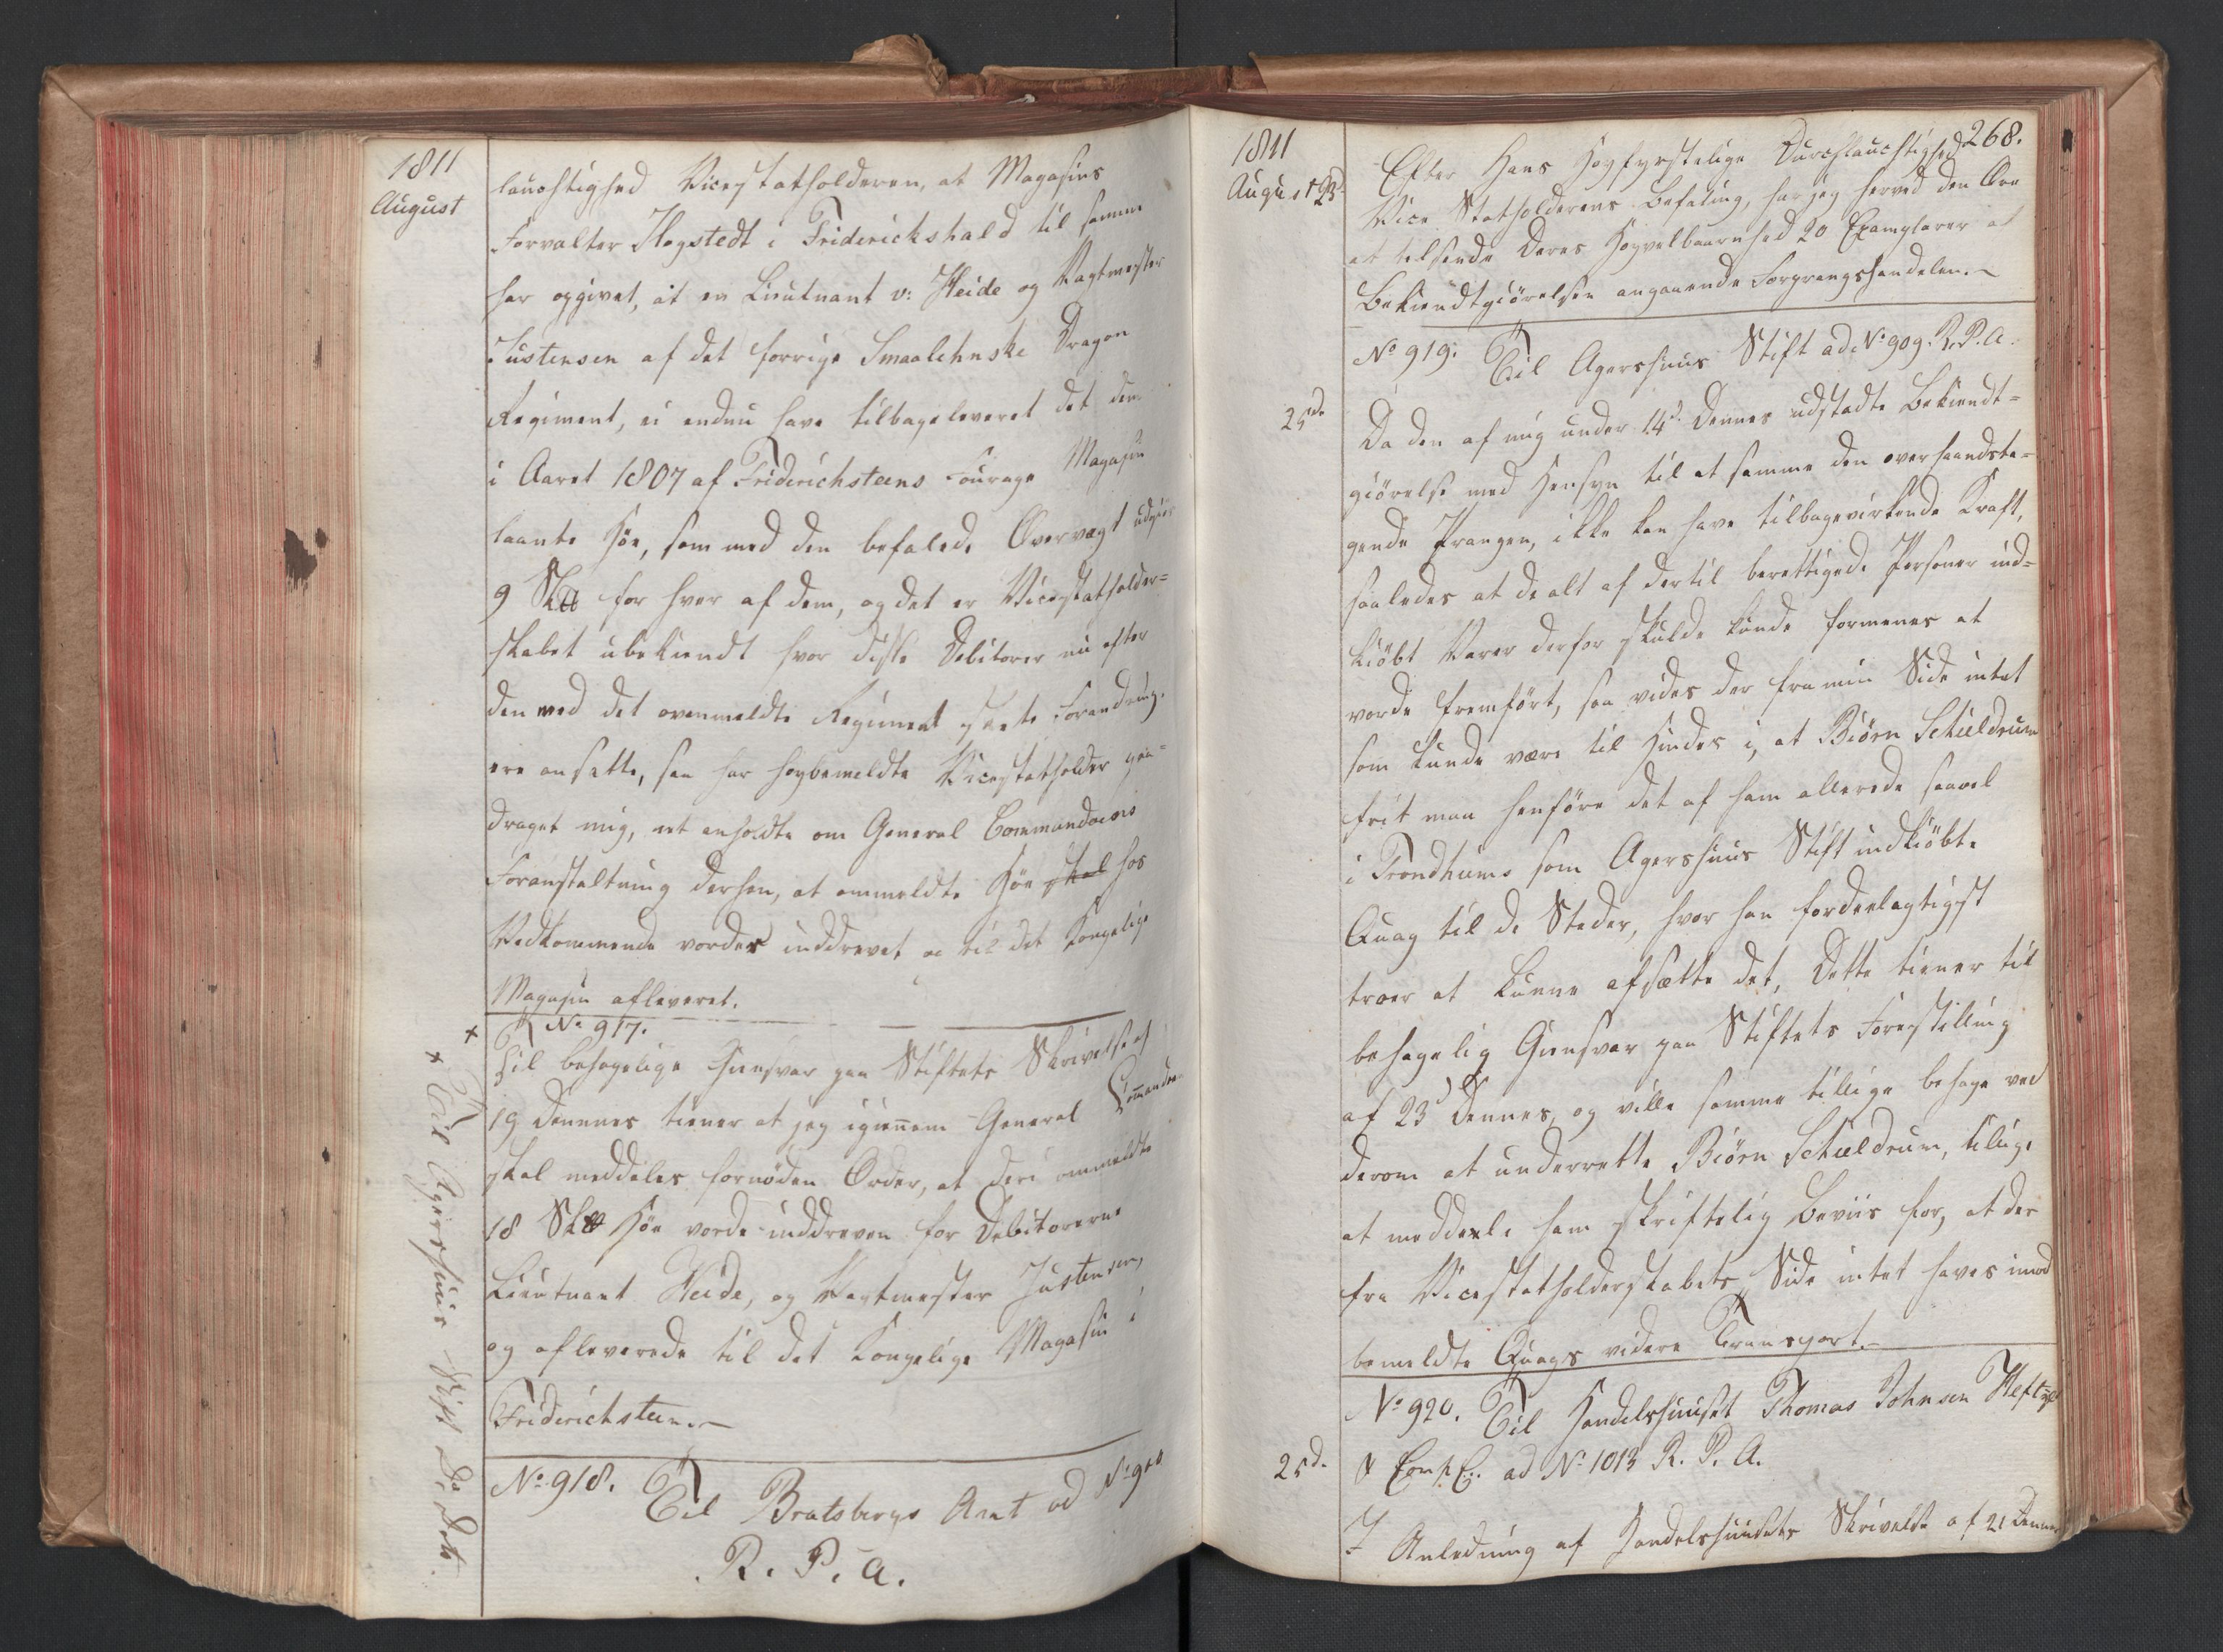 1811
August
lauchtighed Vicestatholderen, at Magasins
Forvalter Hogstedt i Friderickshald til samme
har opgivet, at en Lieutnant v: Heide og Vagtmester
Justensen af det forrige Smaalehnske Dragon
Regiment, ei endnu have tilbageleveret det dem
i Aaret 1807 af Friderichsteens Fourage Magasin
laante Höe, som med den befalede Overvægt udgiör
9 Sk℔ for hver af dem, og det er Vicestatholder=
skabet ubekiendt hvor disse Debitorer nu efter
den med det ovenmeldte Regiment skeete Forandring,
ere ansatte, saa har höybemeldte Vicestatholder paa=
draget mig, at anholdte om General Commandoens
Foranstaltning derhen, at ommeldte Höe skal hos
Vedkommende vorder inddrevet og til det Kongelige
Magasin afleveret.
× No 917.
Til behagelige Giensvar paa Stiftets Skrivelse af
19 Dennes tiener at jeg igiennem General Commandoen
skal meddeles fornöden Order, at deri ommeldte
18 Sk℔ Höe vorde inddreven hos Debitorerne
Lieutnant Heide, og Vagtmester Justensen,
og afleverede til det Kongelige Magasin i
Friderichsteen.—
× Til Agershuus Stift Do Dato.
No 918. Til Bratsbergs Amt ad No 910
R. P. A.
268.
1811
August 23d
Efter Hans Höyfyrstelige Durchlauchtighed
Vice Statholderens Befaling, har jeg herved den Ære
at tilsende Deres Höyvelbaarnhed 20 Exemplarer af
Bekiendtgiörelsen angaaende Forprangshandelen.—
No 919. Til Agershuus Stift ad No 909 R. P. A.
25de
Da den af mig under 14d Dennes udstædte Bekiendt=
giörelse med Hensyn til at hemme den overhaandsta=
gende Prangen, ikke kan have tilbagevirkende Kraft,
saaledes at de alt af dertil berettigede Personer ind=
kiöbt Varer derfor skulde kunde formenes at
vorde fremfört, saa vides der fra min Side intet
som kunde være til Hinder i, at Biörn Schieldrum
frit maa henföre det af ham allerede saavel
i Trondhiems som Agershuus Stift indkiöbte
Qvæg til de Steder, hvor han fordeelagtigst
troer at kunne afsætte det, Dette tiener til
behagelig Giensvar paa Stiftets Forestilling
af 23d Dennes, og ville samme tillige behage ved
derom at underrette Biörn Schieldrum, tillige
at meddeele ham skriftelig Beviis for, at der
fra Vicestatholderskabets Side intet haves imod
bemeldte Qvægs videre Transport.—
No 920. Til Handelshuuset Thomas Johnsen Heftye
25d.
& Comp. ad No 1013 R. P. A.
I Anledning af Handelshuusets Skrivelse af 21 Dennes